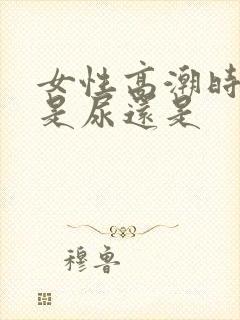 女性高潮時
是尿還是
穆魯